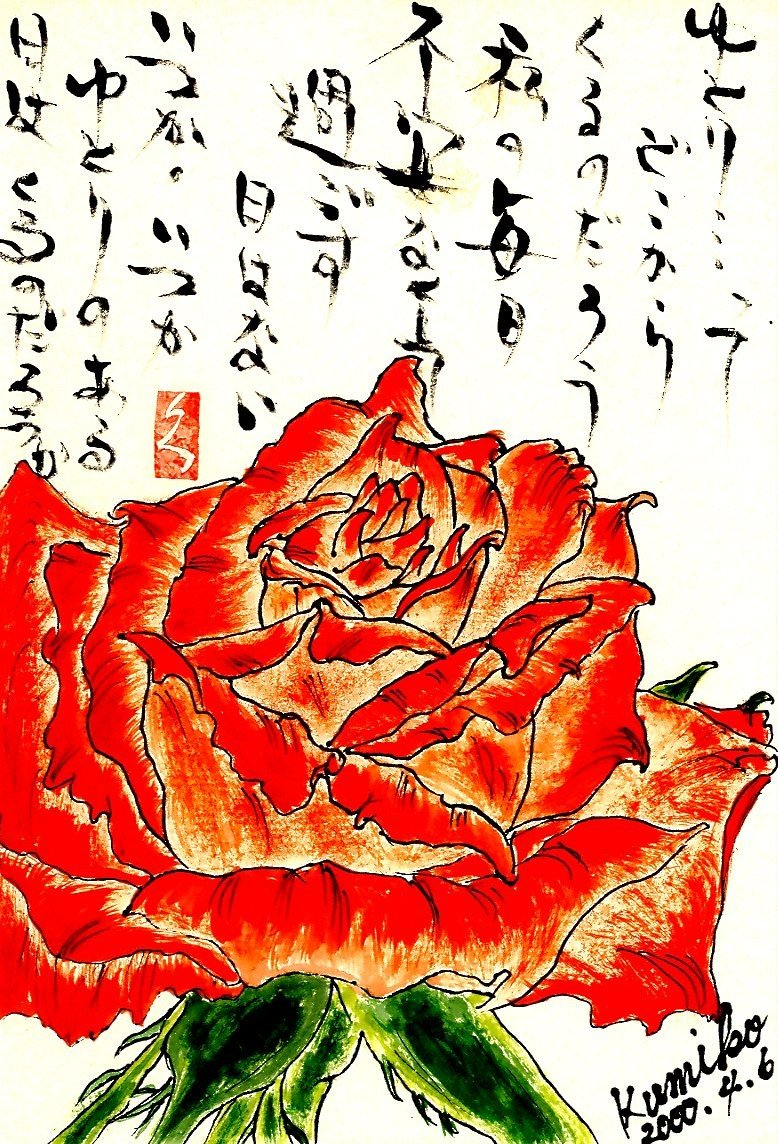 ゆとり…って
どこから
くるのだろう
私の毎日
不安なまま
過ごす
日はない
いつか・いつか
ゆとりのある
日はくるのだろうか
久
Kumiko
2000.4.6